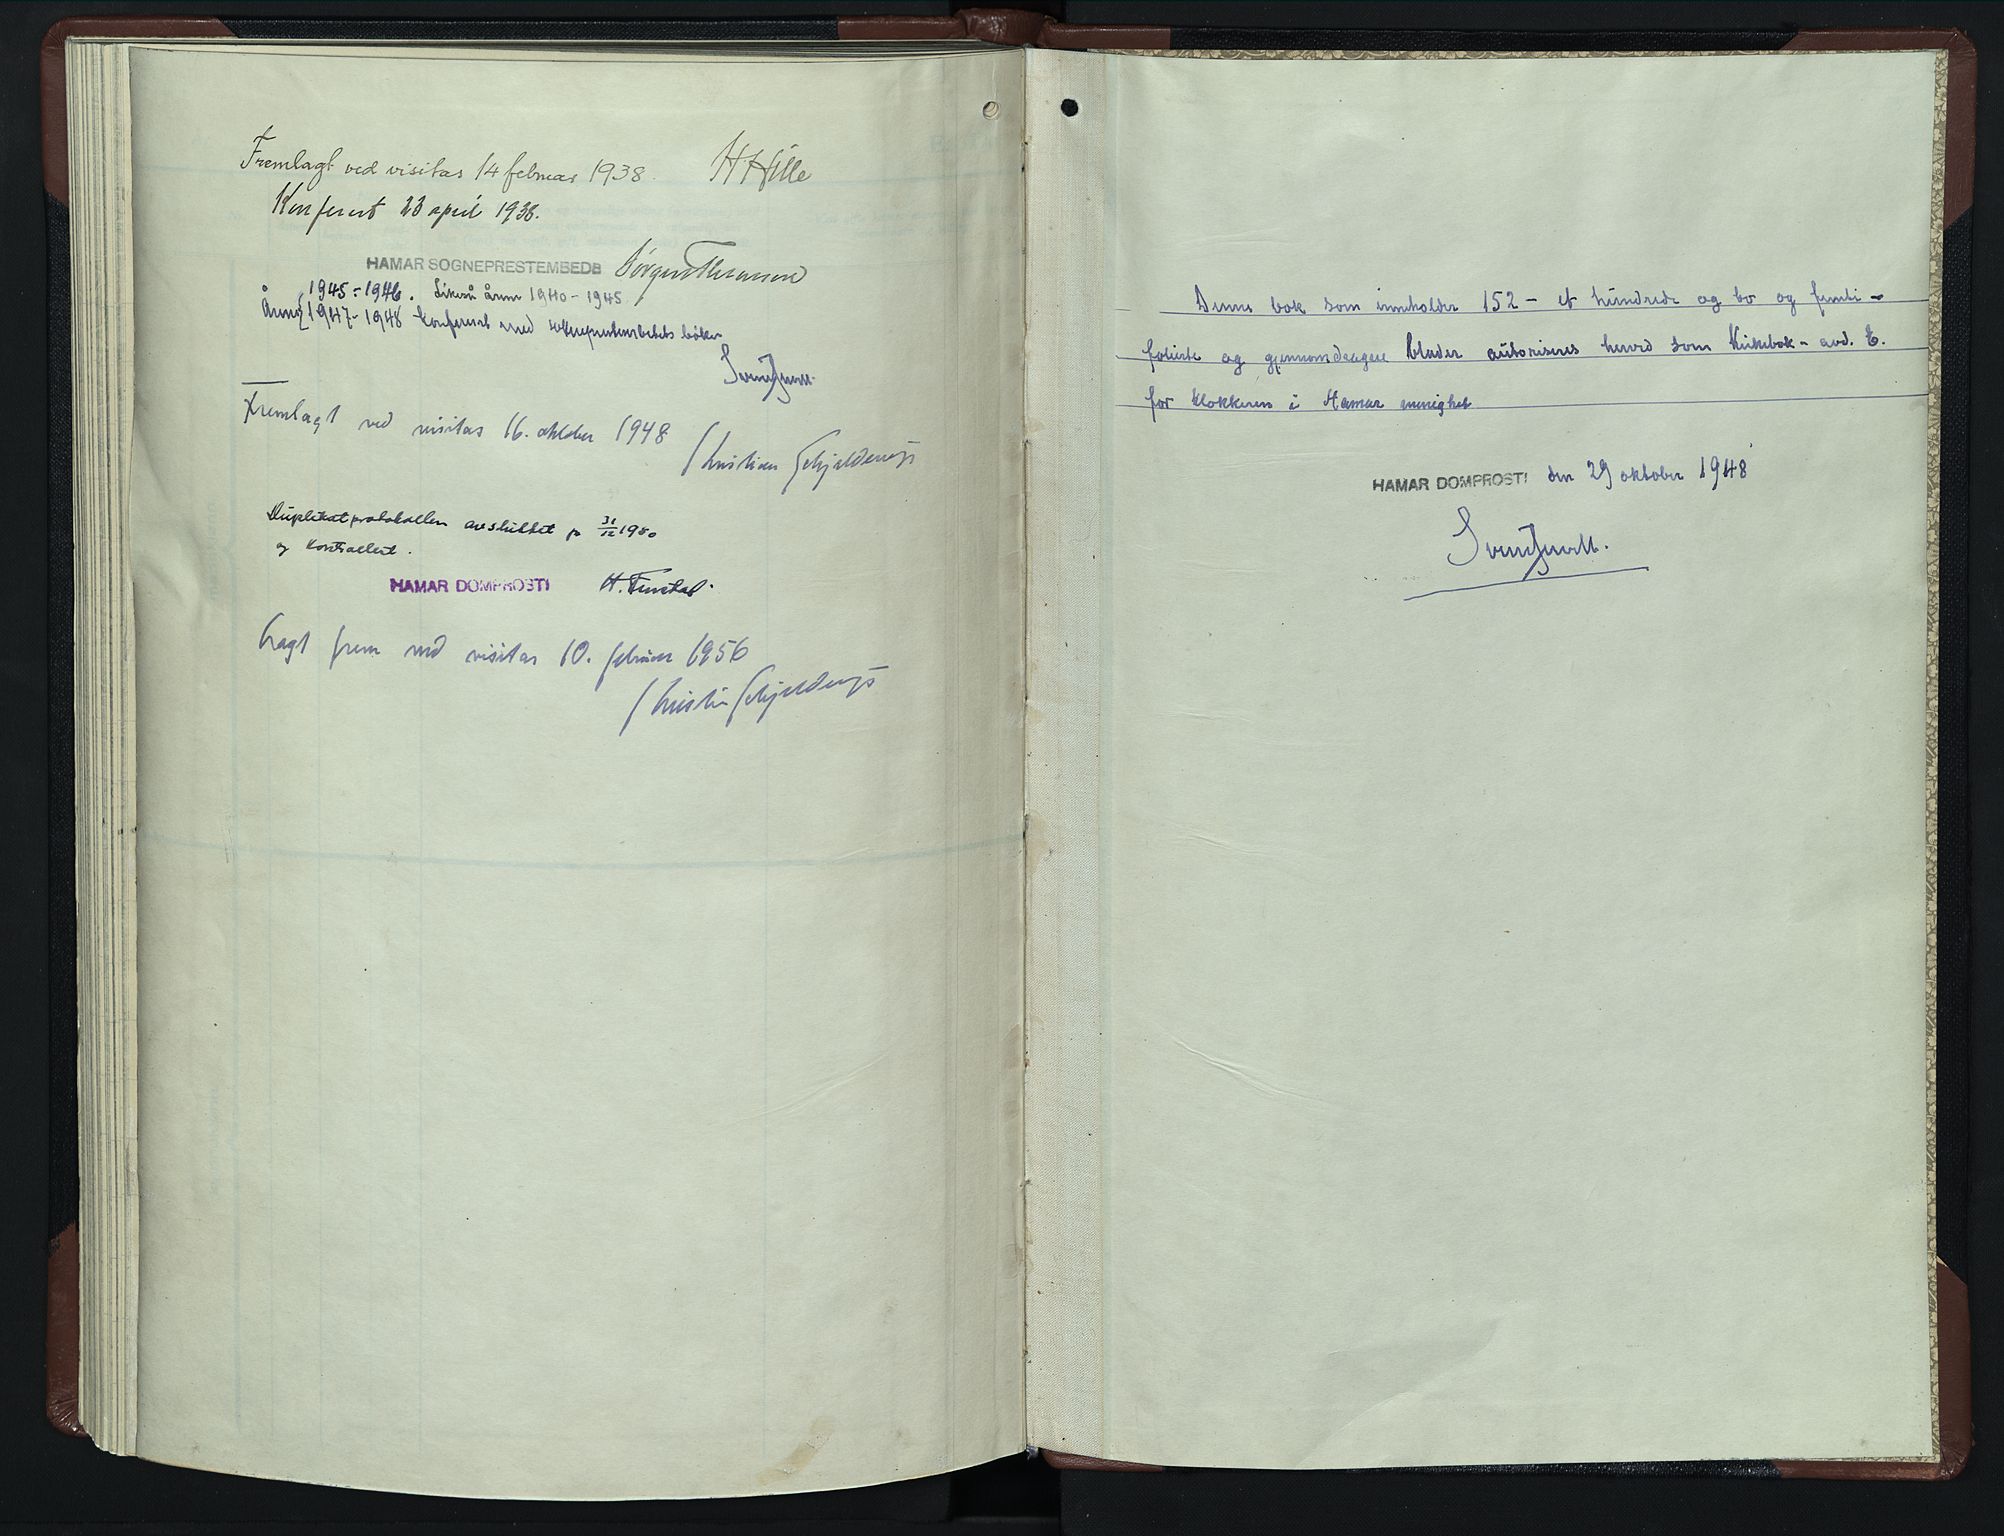 Fremlagt ved visitas 14 februar 1938. H Hille
Konferert 23 april 1938.
HAMAR SOGNEPRESTEMBEDE
1945 - 1946. Likeså årene 1940 - 1945
Årene 1947 - 1948 konferert med sokneprestembetets bøker
Fremlagt ved visitas 16. oktober 1948
Kristian Schjelderup
Duplikatprotokollen avsluttet pr 31/12 1950
og kontrollert.
HAMAR DOMPROSTI
Lagt frem ved visitas 10. februar 1956
Kristian Schjelderup
Denne bok som inneholder 152 - et hundrede og to og femti -
folierte og gjennomdragne blader autoriseres herved som Kirkebok - avd. E.
for klokkeren i Hamar menighet
HAMAR DOMPROSTI den 29 oktober 1948